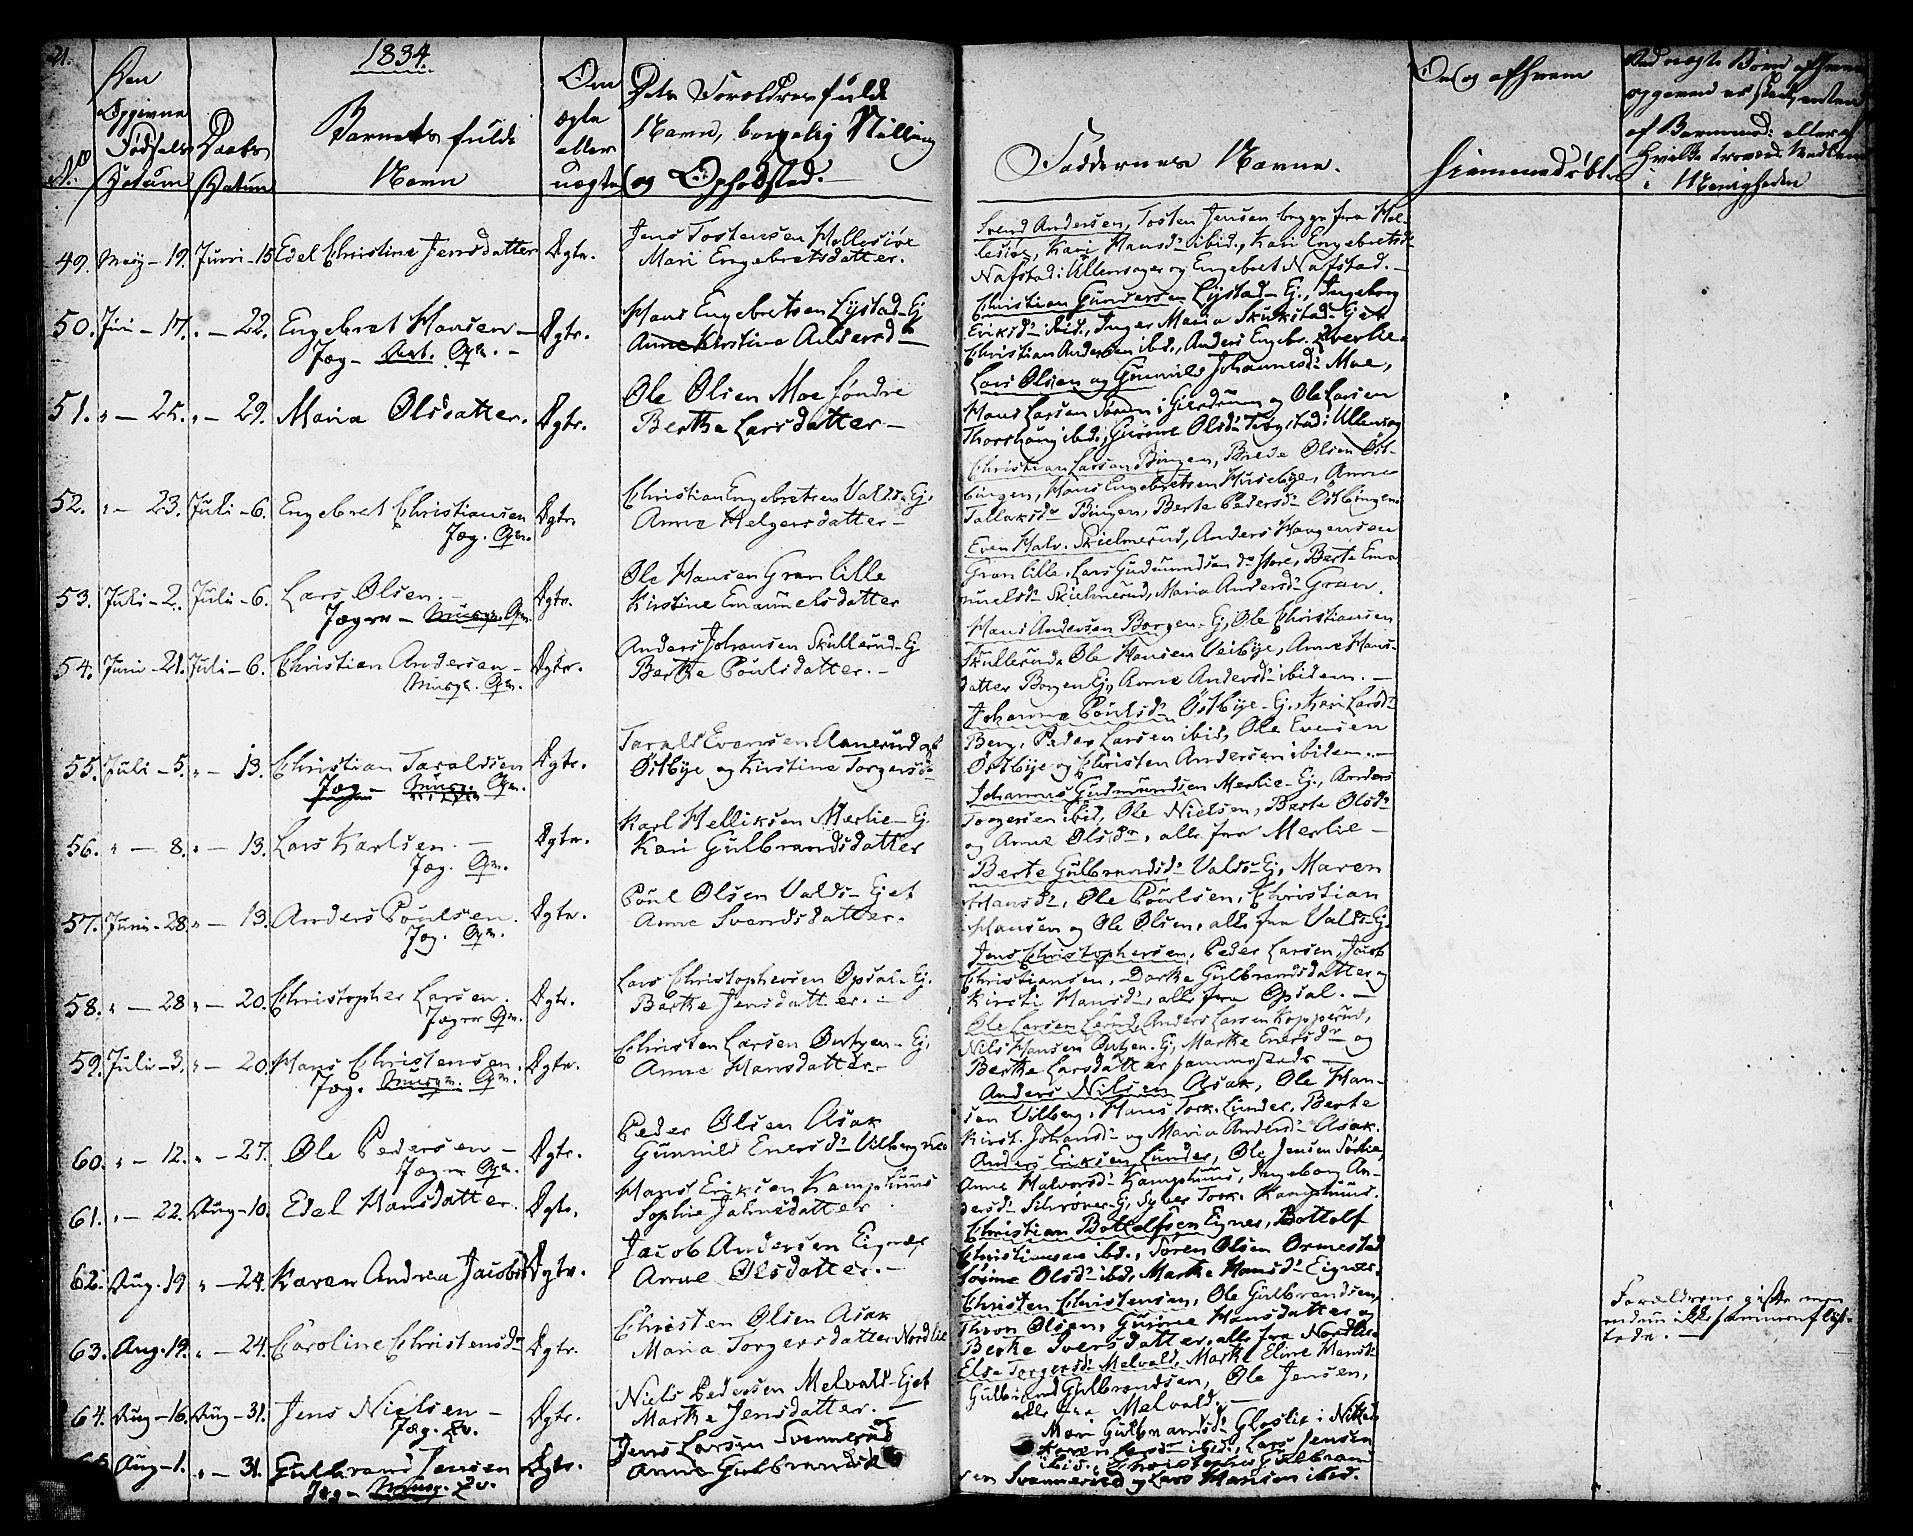 21.
1834.
Den Opgivne Fødsels Datum
Daabs Datum
Barnets fulde Navn
Om ægte eller uægte
Dets Forældres fulde Navn, borgelig Stilling og Opholdsted.
Faddernes Navne.
Om og af hvem hjemmedøbt.
i Menigheden
49. Maij - 19. Juni - 15 Edel Christine Jensdatter Ægte.
Jens Tostensen Hellesiøe
Mari Engebretsdatter.
Svend Andersen, Tosten Jensen begge fra Hel-
lesiøe, Kari Hansdr ibid., Kari Engebretsdr
Nafstad i Ullensager og Engebret Nafstad. -
50. Juni - 17. " - 22. Engebret Hansen - Ægte.
Hans Engebretsen Lystad - Ej
Anne Kirstine Andersdr
Christian Gundersen Lystad - Ej., Ingeborg
Eriksdr ibid., Inger Maria Skukstad - Ejet
Christian Andersen ibid., Anders Engebr.
51. " - 25. " - 29. Maria Olsdatter. Ægte.
Ole Olsen Moe søndre
Berthe Larsdatter -
Lars Olsen og Gunnild Johannesdr Moe,
Hans Larsen i Gierdrum og Ole Larsen
52. " - 23. Juli - 6. Engebret Christiansen Ægte
Jæg.
Christian Engebretsen Valds - Ej.
Anne Helgersdatter -
Christian Larsen Bingen, Brede Olsen Øst-
bingen, Hans Engebretsen Huseby, Anne
Tallaksdr Bingen, Berte Pedersdr Østbingen
53. Juli - 2. Juli - 6. Lars Olsen. - Ægte.
Jæger -
Ole Hansen Gran lille
Kirstine Emanuelsdatter
Even Halv. Skielmerud, Anders Haagensen
Gran lille, Lars Gudmundsen do store, Berte Ema-
nuelsdr Skielmerud, Maria Andersdr Gran.
54. Juni - 21. Juli - 6. Christian Andersen - Ægte.
Anders Johansen Skullerud - Ej
Berthe Poulsdatter. -
Hans Andersen Borgen - Ej, Ole Christiansen
Skullerud, Ole Hansen Veibye, Anne Hans-
datter Borgen Ej, Anne Andersdr ibidem. -
55. Juli - 5. " - 13. Christian Taraldsen Ægte.
Jæg -
Tarald Evensen Aanerud af
Østbye og Kirstine Torgersdr
Johanne Poulsdr Østbye - Ej., Kari Larsdr
Berg, Peder Larsen ibid, Ole Evensen
Østbye og Christen Andersen ibidem. -
56. " - 8. " - 13. Lars Karlsen. - Ægte.
Jæg.
Karl Helliksen Merlie - Ej.
Kari Gulbrandsdatter
Johannes Gudmundsen Merlie - Ej., Anders
Torgersen ibid, Ole Nielsen, Berte Olsdr
og Anne Olsdr, alle fra Merlie -
57. Juni - 28. " - 13. Anders Poulsen. Ægte.
Jæg.
Poul Olsen Valds - Ejet
Anne Svendsdatter.
Berte Gulbrandsdr Valds - Ej, Maren
Hansdr, Ole Poulsen, Christian
Hansen og Ole Olsen, alle fra Valds - Ej.
58. " - 28 " - 20. Christopher Larsen. Ægte.
Jæger
Lars Christophersen Opsal - Ej.
Berthe Jensdatter. -
Jens Christophersen, Peder Larsen, Jacob
Christiansen, Dorthe Gulbrandsdatter og
Kirsti Hansdr, alle fra Opsal. -
59. Juli - 3. " - 20. Hans Christensen. Ægte.
Jæg.
Christen Larsen - Ej.
Anne Hansdatter -
Ole Larsen Lerud, Anders Larsen Kopperud,
Nils Hansen - Ej, Marthe Enersdr og
Berthe Larsdatter sammesteds -
60. " - 12. " - 27. Ole Pedersen - Ægte.
Jæger
Peder Olsen Asak
Gunnild Enersdr Vilberg
Anders Nilsen Asak, Ole Han-
sen Vilberg, Hans Tork. Lunder, Berte
Kirst. Johansdr og Maria Andersdr Asak.
61. " - 22. Aug - 10. Edel Hansdatter. Ægte.
Hans Eriksen Kamphuus
Sophie Jahnsdatter
Anders Eriksen Lunder, Ole Jensen Sørlie,
Anne Halvorsdr Kamphuus, Ingeborg An-
dersdr Schrøver - Ej, Syver Tork. Kamphuus.
62. Aug. 19 " - 24. Karen Andrea Jacobsdr Ægte.
Jacob Andersen Eignæs
Anne Olsdatter. -
Christian Bottolfsen Eignes, Bottolf
Christiansen ibid., Søren Olsen Ormestad
Sørine Olsdr ibid, Marthe Hansdr Eignæs.
63. Aug. 19. " - 24. Caroline Christensdr Ægte.
Christen Olsen Asak
Maria Torgersdatter Nordlie
Christen Christensen, Ole Gulbrandsen,
Thron Olsen, Gurine Hansdatter og
Berthe Iversdatter, alle fra Nordlie.
Forældrene gifte men
endnu ikke sammenflyt-
tede. -
64. Aug - 16. Aug - 31. Jens Nielsen - Ægte.
Jæg. Ev.
Niels Pedersen Melvald - Ejet
Marthe Jensdatter. -
Else Torgersdr Melvald, Marthe Eline Hansdr
Gulbrand Gulbrandsen, Ole Jensen,
alle fra Melvald. -
Aug - 1. " - 31. Gulbrand Jensen Ægte.
Jæg - Ev.
Jens Larsen Svennerud
Anne Gulbrandsdr
Mari Gulbrandsdr Gloslie i Nittedal
Karen Larsdr ibid., Lars Jensen
ibid., Christopher Gulbrand-
sen Svennerud og Lars Hansen ibid.